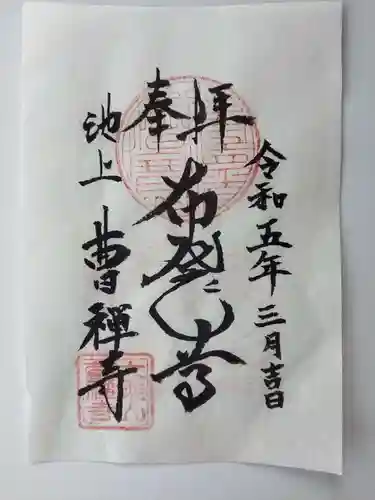 奉拝
令和五年三月吉日
布袋尊
池上
曹禅寺